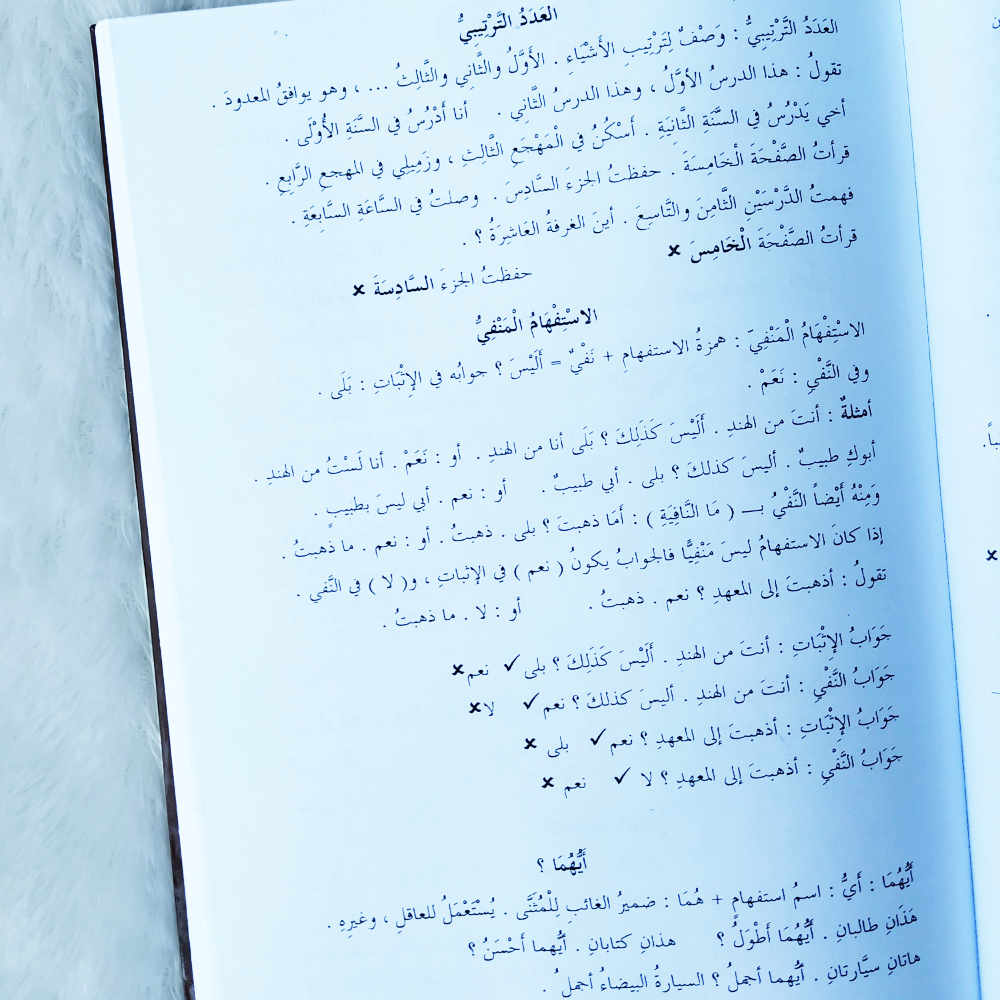 العَدَدُ التَّرْتِيبِيُّ
العَدَدُ التَّرْتِيبِيُّ : وَصْفٌ لِتَرْتِيبِ الأَشْيَاءِ . الأَوَّلُ والثَّانِي والثَّالِثُ ... ، وهو يوافقُ المعدودَ .
تقولُ : هذا الدرسُ الأوَّلُ ، وهذا الدرسُ الثَّانِي . أنا أَدْرُسُ في السَّنَةِ الأُوْلَى .
أخي يَدْرُسُ في السَّنَةِ الثَّانِيَةِ . أَسْكُنُ في الْمَهْجَعِ الثَّالِثِ ، وزَمِيلِي في المهجعِ الرَّابِعِ .
قرأتُ الصَّفْحَةَ الْخَامِسَةَ . حفظتُ الجزءَ السَّادِسَ . وصلتُ في السَّاعَةِ السَّابِعَةِ .
فهمتُ الدَّرْسَيْنِ الثَّامِنَ والتَّاسِعَ . أينَ الغرفةُ العَاشِرَةُ ؟ .
قرأتُ الصَّفْحَةَ الْخَامِسَ ✘ حفظتُ الجزءَ السَّادِسَةَ ✘
الاسْتِفْهَامُ الْمَنْفِيُّ
الاسْتِفْهَامُ الْمَنْفِيّ : همزةُ الاستفهامِ + نَفْيٌ = أَلَيْسَ ؟ جوابُه في الإِثْبَاتِ : بَلَى .
وفي النَّفْيِ : نَعَمْ .
أمثلةٌ : أنتَ من الهندِ . أَلَيْسَ كَذَلِكَ ؟ بَلَى أنا من الهندِ . أو : نَعَمْ . أنا لَسْتُ من الهندِ .
أبوكِ طبيبٌ . أليسَ كذلكَ ؟ بلى . أبي طبيبٌ . أو : نعم . أبي ليسَ بطبيبٍ .
وَمِنْهُ أَيْضاً النَّفْيُ بـــ ( مَا النَّافِيَةِ ) : أَمَا ذهبتَ ؟ بلى . ذهبتُ . أو : نعم . ما ذهبتُ .
إذا كانَ الاستفهامُ ليسَ مَنْفِيًّا فالجوابُ يكونُ ( نعم ) في الإثباتِ ، و( لا ) في النَّفي .
تقولُ : أذهبتَ إلى المعهدِ ؟ نعم . ذهبتُ . أو : لا . ما ذهبتُ .
جَوَابُ الإِثْبَاتِ : أنتَ من الهندِ . أَلَيْسَ كَذَلِكَ ؟ بلى ✓ نعم ✘
جَوَابُ النَّفْيِ : أنتَ من الهندِ . أليسَ كذلكَ ؟ نعم ✓ لا ✘
جَوَابُ الإِثْبَاتِ : أذهبتَ إلى المعهدِ ؟ نعم ✓ بلى ✘
جَوَابُ النَّفْيِ : أذهبتَ إلى المعهدِ ؟ لا ✓ نعم ✘
أَيُّهُمَا ؟
أَيُّهُمَا : أَيُّ : اسمُ استفهامٍ + هُمَا : ضميرُ الغائبِ لِلْمُثَنَّى . يُسْتَعْمَلُ للعاقلِ ، وغيرِهِ .
هَذَانِ طالبانِ . أَيُّهُمَا أَطْوَلُ ؟ هذانِ كتابانِ . أيُّهما أَحْسَنُ ؟
هاتانِ سيَّارتانِ . أيُّهما أجملُ ؟ السيارةُ البيضاءُ أجملُ .